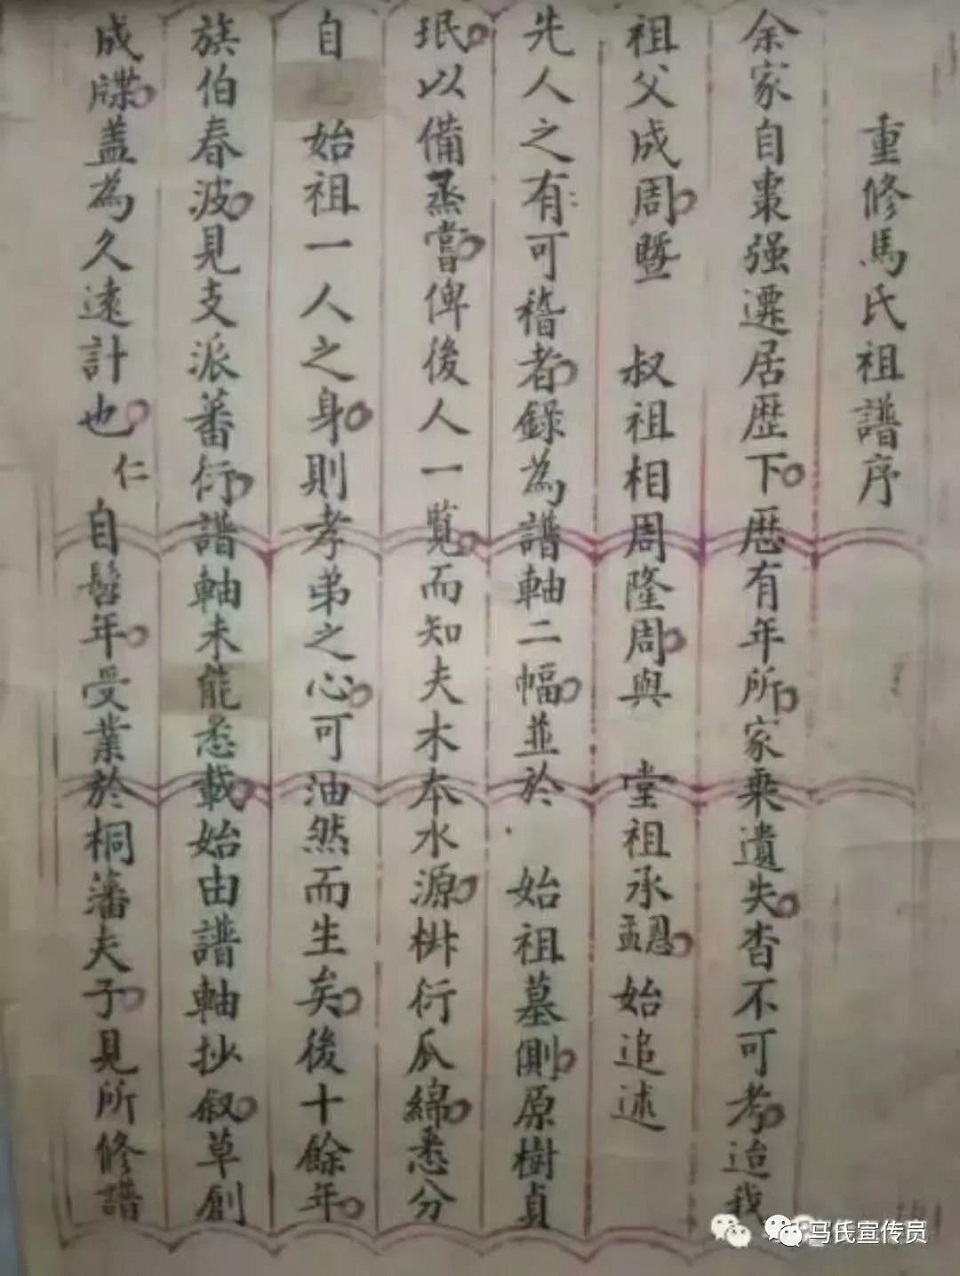 重修馬氏祖譜序
余家自棗强遷居歷下歷有年所家乘遺失杳不可考迨我
祖父成周暨 叔祖相周隆周與 堂祖承 始追述
先人之有可稽者錄為譜軸二幅並於 始祖墓側原樹貞
珉以備蒸嘗俾後人一覽而知夫木本水源椒衍瓜綿悉分
自 始祖一人之身則孝弟之心可油然而生矣後十餘年
族伯春波見支派蕃衍譜軸未能悉載始由譜軸抄叙草創
成牒蓋為久遠計也 仁 自髫年受業於桐藩夫子見所修譜
马氏宣传员